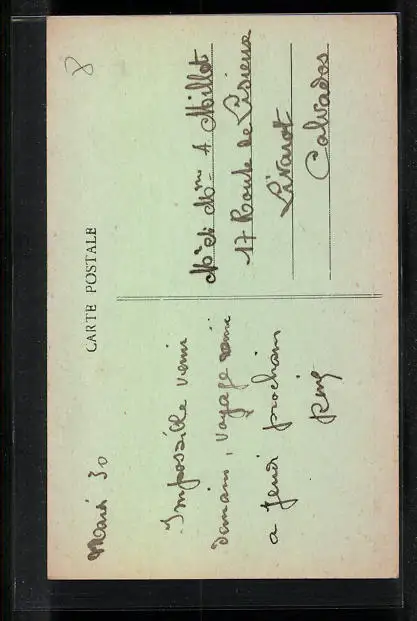 CARTE POSTALE
8
Mardi 30
Impossible venir
demain, voyage remis
a jeudi prochain
Mr et Mme A Millet
17 Route de Lisieux
Livarot
Calvados